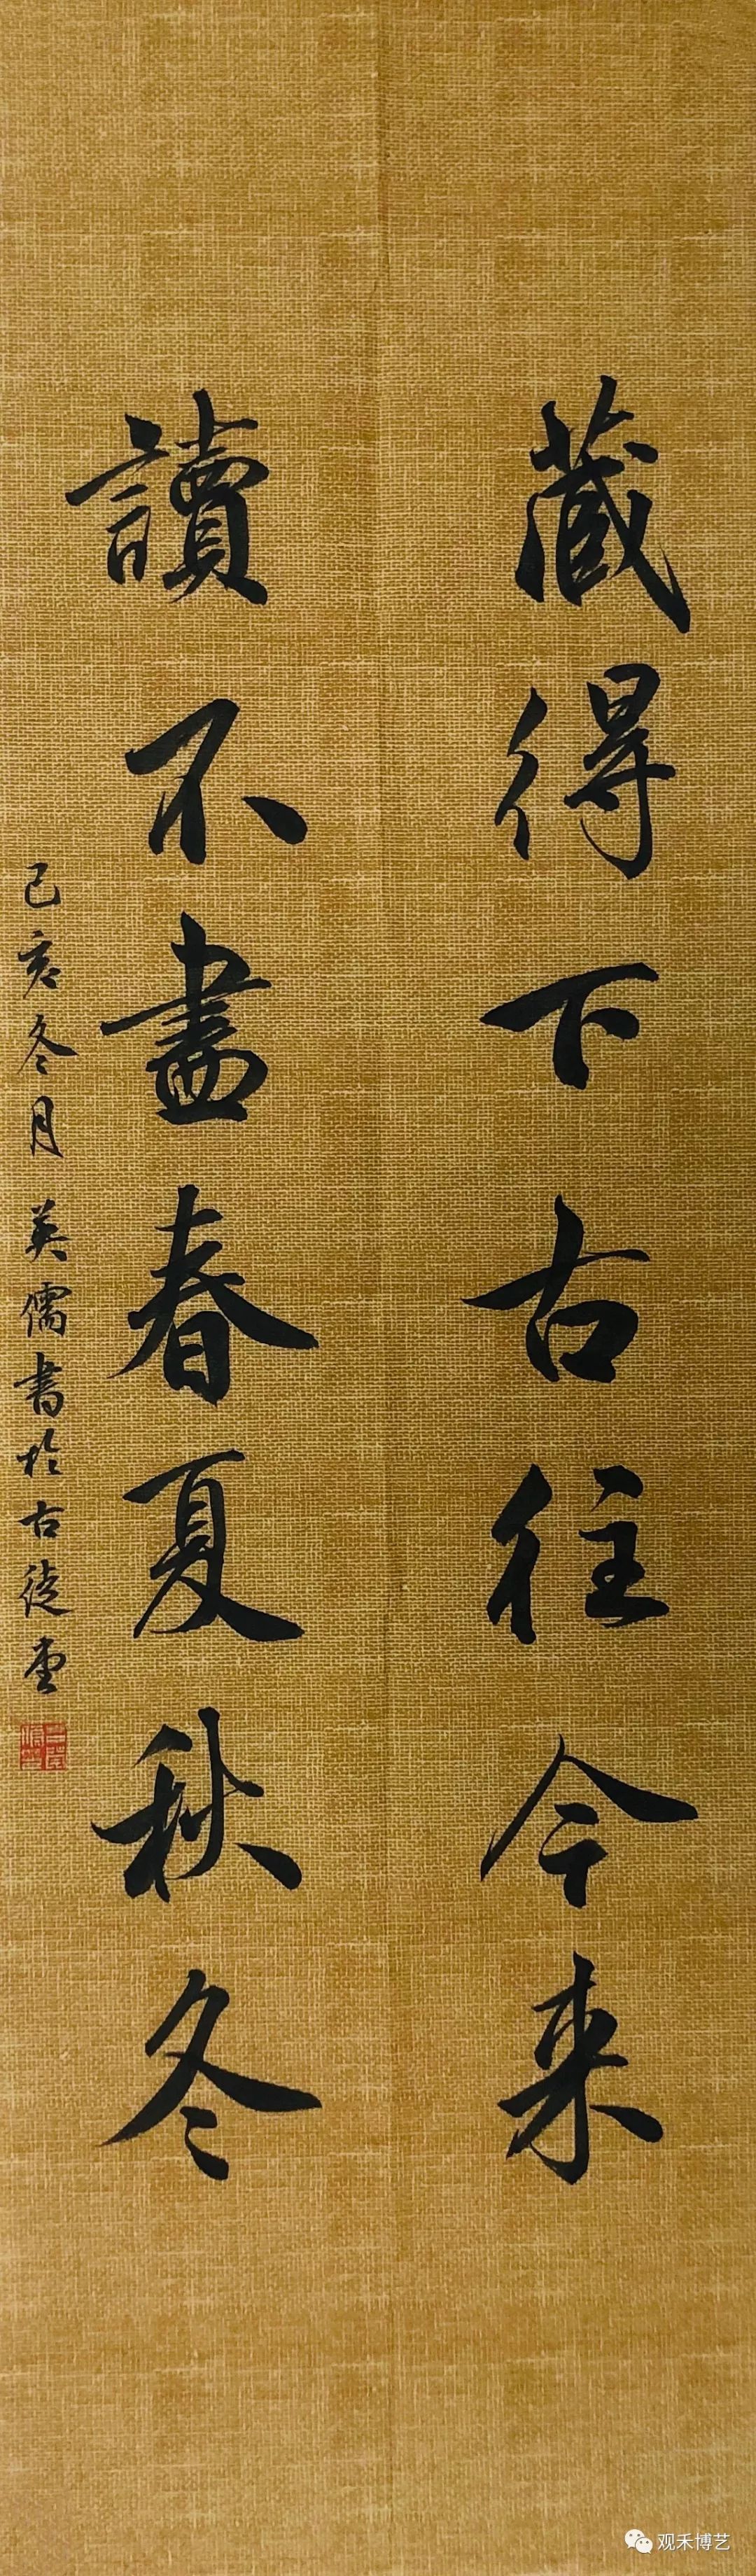 藏得下古往今来
讀不盡春夏秋冬
己亥冬月英儒書於古徒堂
观禾博艺